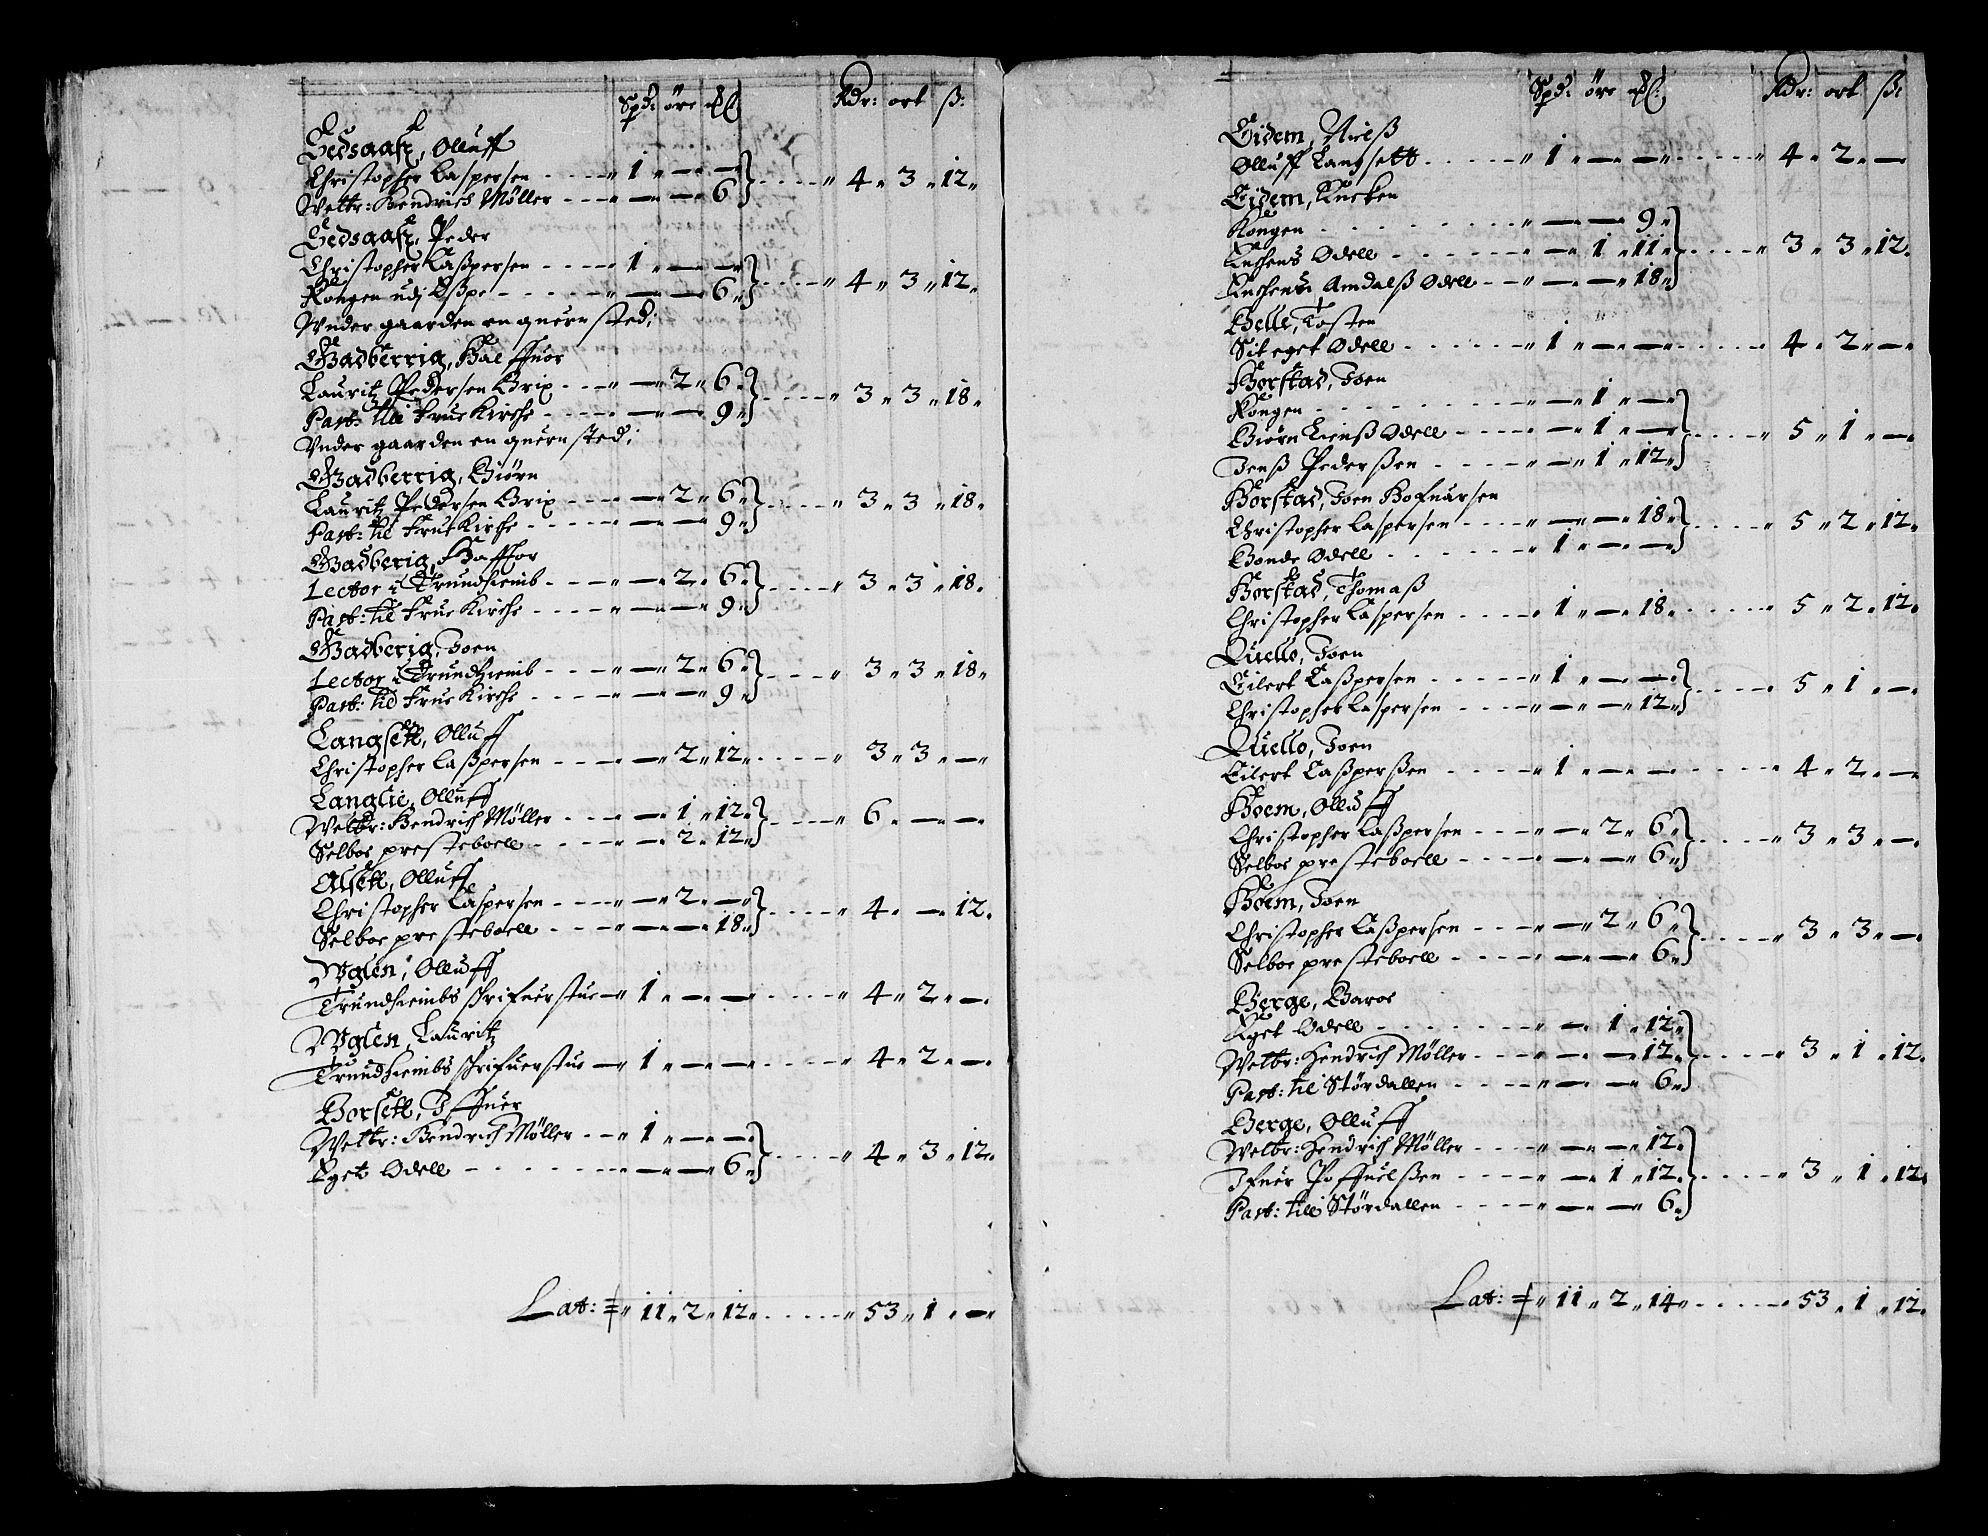 Spd: öre mkl: Rdr: ort ß:
Gedsaasz, Olluff
Christopher Caspersen - - - - " 1 " — " — } - - - - " 4 " 3 " 12 "
Welbr: Hendrich Møller - - - " — " — " 6
Gedsaasz, Peder
Christopher Caßpersen - - - - " 1 " — " — } - - - - " 4 " 3 " 12 "
Kongen udj Eßpe - - - - - " — " — " 6 "
Vnder gaarden en quernsted;
Gvadberrig, Halffuor
Lauritz Pedersen Brix - - - " — " 2 " 6 " } - - - - " 3 " 3 " 18 "
Past: till Frue Kirche - - - - " — " — " 9 "
Vnder gaarden en quernsted;
Gvadberrig, Biørn
Lauritz Pedersen Brix - - - - " — " 2 " 6 " } - - - - " 3 " 3 " 18 "
Past: til Frue Kirche - - - - " — " — " 9 "
Gvadberig, Haffor
Lector i Trundhiemb - - - - " — " 2 " 6 " } - - - - " 3 " 3 " 18 "
Past: til Frue Kirche - - - - " — " — " 9 "
Gvadberig, Joen
Lector i Trundhiemb - - - - " — " 2 " 6 " } - - - - " 3 " 3 " 18 "
Past: til Frue Kirche - - - - " — " — " 9 "
Langsett, Olluff
Christopher Caßpersen - - - " — " 2 " 12 " - - - - " 3 " 3 " — "
Langlie, Olluff
Welbr: Hendrich Møller - - - " — " 1 " 12 " } - - - - " 6 " — " —
Selboe presteboell - - - - " — " 2 " 12 "
Alsett, Olluff
Christopher Caspersen - - - - " — " 2 " — " } - - - - " 4 " — " 12 "
Selboe presteboell - - - - " — " — " 18 "
Wglen, Olluff
Trundhiembs schrifuerstue — " 1 " — " — - - - - " 4 " 2 " —
Wglen, Lauritz
Trundhiembs schrifuerstue — " 1 " — " — - - - - " 4 " 2 " —
Borsett, Iffuer
Welbr: Hendrich Møller - - - " 1 " — " — } - - - - " 4 " 3 " 12 "
Eget Odell - - - - - - " — " — " 6 "
Lat: = " 11 " 2 " 12 " - - - - " 53 " 1 " —
Spd: öre mkl: Rdr: ort ß:
Eidem, Nielß
Olluff Langsett - - - - " 1 " — " — " - - - - " 4 " 2 " —
Eidem, Encken
Kongen - - - - - - " — " — " 9 " } - - - - " 3 " 3 " 12 "
Enchens Odell - - - - - " — " 1 " 11 "
Enchens Amdalß Odell - - " — " — " 18 "
Belle, Tosten
Sit eget Odell - - - - " 1 " — " — - - - - " 4 " 2 " —
Horstad, Joen
Kongen - - - - - - " — " 1 " — } - - - - " 5 " 1 " —
Biørn Eienß Odell - - - - " — " 1 " —
Jenß Pederßen - - - - " — " 1 " 12 "
Horstad, Joen Hofuarsen
Christopher Caspersen - - - - " — " — " 18 " } - - - - " 5 " 2 " 12 "
Bonde Odell - - - - - " 1 " — " —
Horstad, Thomaß
Christopher Caspersen - - - - " 1 " — " 18 " - - - - " 5 " 2 " 12 "
Quello, Joen
Eilert Caßpersen - - - - " 1 " — " — } - - - - " 5 " 1 " —
Christopher Caspersen - - - - " — " — " 12 "
Quello, Joen
Eilert Caßperßen - - - - " 1 " — " — - - - - " 4 " 2 " —
Hoem, Olluff
Christopher Caßpersen - - - " — " 2 " 6 " } - - - - " 3 " 3 " —
Selboe presteboell - - - - " — " — " 6 "
Hoem, Joen
Christopher Caßpersen - - - " — " 2 " 6 " } - - - - " 3 " 3 " —
Selboe presteboell - - - - " — " — " 6 "
Berge, Baroe
Eget Odell - - - - - " — " 1 " 12 " } - - - - " 3 " 1 " 12 "
Welbr: Hendrich Møller - - - " — " — " 12 "
Past: til Størdallen - - - - " — " — " 6 "
Berge, Olluff
Welbr: Hendrich Møller - - - " — " — " 12 " } - - - - " 3 " 1 " 12 "
Ifuer Poffuelßen - - - - " — " 1 " 12 "
Past: till Størdallen - - - - " — " — " 6 "
Lat: = " 11 " 2 " 14 " - - - - " 53 " 1 " 12 "